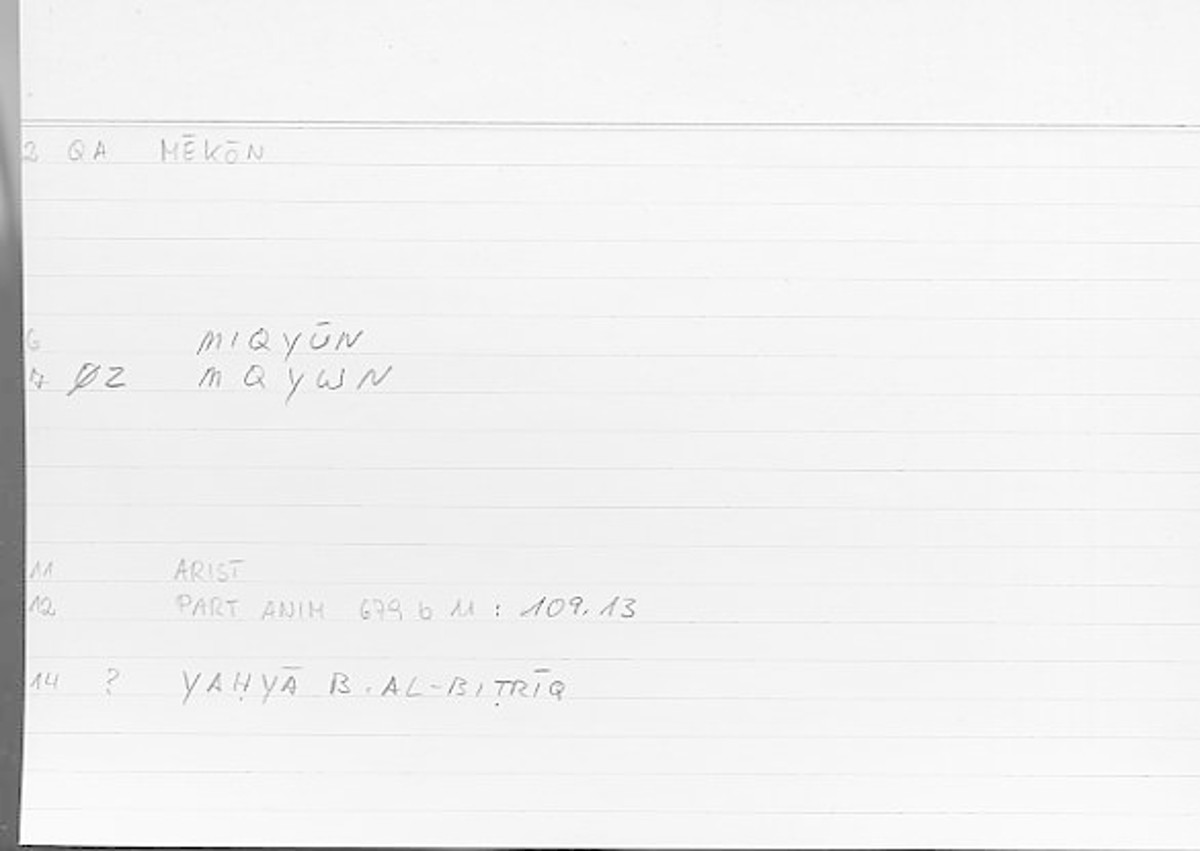 2 QA MĒKŌN
6 MIQYŪN
7 ØZ MQYWN
11 ARIST
12 PART ANIM 679 b 11 : 109.13
14 ? YAḤYĀ B. AL-BIṬRĪQ